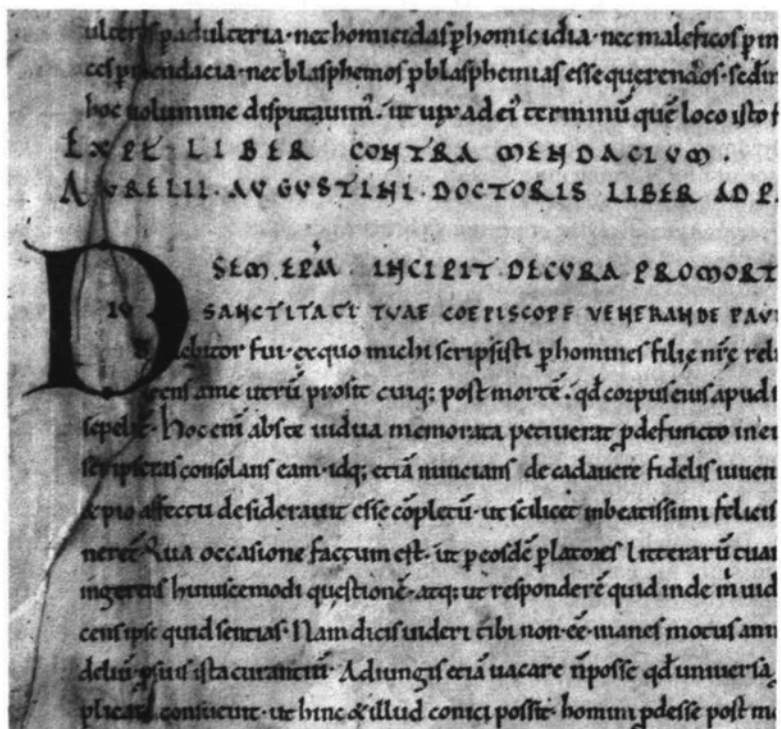 ulteros p adulteria · nec homicidas p homicidia · nec maleficos p m
ces p mendacia · nec blasphemos p blasphemias esse querendos · sed in
hoc uolumine disputauim᷒ · ut usq; ad ei᷒ terminū quē loco isto f
EXPL LIBER CONTRA MENDACIUM .
AURELII · AUGUSTINI · DOCTORIS LIBER AD P
SEM · EPM INCIPIT · DE CURA PRO MORT
DIU SANCTITATI TUAE COEPISCOPE VENERANDE PAU
debitor fui · ex quo michi scripsisti p homines filię nrę reli
rens a me utrū prosit cuiq; post mortē · qd corpus eius apud s
sepelit · Hoc eni abs te uidua memorata petiuerat p defuncto in ei
scripseras consolans eam · idq; etiā nuncians de cadauere fidelis iuuen
& pio affectu desiderauit esse cōpletū · ut scilicet in beatissimi felicis
neret Qua occasione factum est · ut p eosdē platores litterarū tuar
ingerens huiuscemodi questionē · atq; ut responderē quid inde m uid
cens ipse quid sentias · Nam dicis uideri tibi non ēe inanes motus ani
deliū p suis ista curantiū · Adiungis etiā uacare n posse qd uniuersa
plicare consueuit · ut hinc & illud conici possit · homini pdesse post m